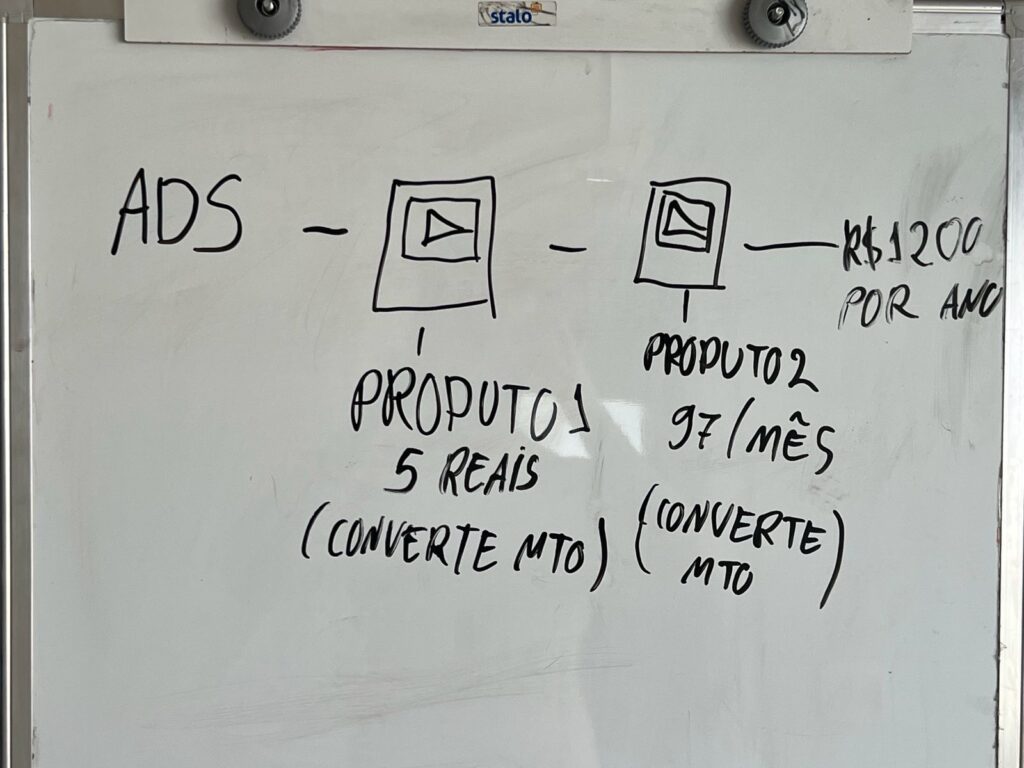 stalo
ADS
R$1200
POR ANO
PRODUTO 1
5 REAIS
(CONVERTE MTO)
PRODUTO 2
97/MÊS
(CONVERTE
MTO)